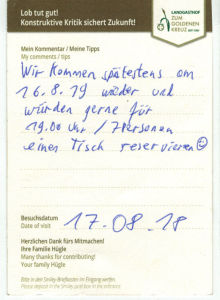 Lob tut gut!
Konstruktive Kritik sichert Zukunft!
LANDGASTHOF
ZUM
GOLDENEN
KREUZ
Mein Kommentar / Meine Tipps
My comments / tips
Wir kommen spätestens am
16.8.19 wieder und
würden gerne für
19.00 Uhr / 7 Personen
einen Tisch reservieren
Besuchsdatum
Date of visit
17.08.18
Herzlichen Dank fürs Mitmachen!
Ihre Familie Hügle
Many thanks for contributing!
Your family Hügle
Bitte in den Smiley-Briefkasten im Eingang werfen.
Please deposit in the Smiley post box in the entrance